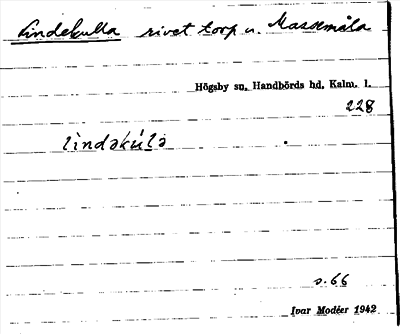 Lindekulla rivet torp u. Massemåla
Högsby sn. Handbörds hd. Kalm. l.
228
lìndəkúlə
s. 66
Ivar Modéer 1942